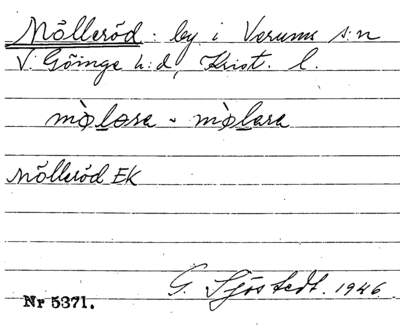 Mölleröd. by i Verums s:n
V. Göinge h:d, Krist. l.
mø̀lǝra - mø̀lara
Mölleröd EK
G. Sjöstedt. 1946
Nr 5371.